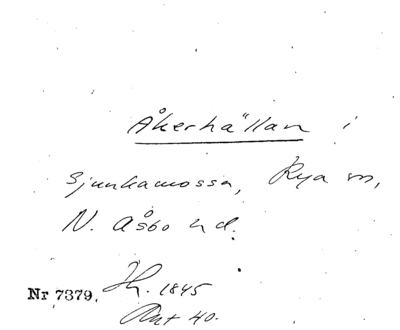 Åkerhällan i
Sjunkamossa, Rya sn,
N. Åsbo hd.
Nr 7379. Hg. 1845
Ant 40.